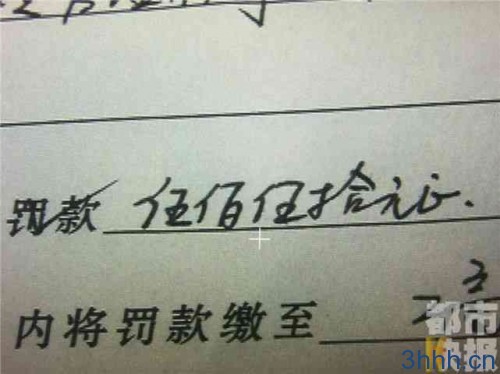 罚款 伍佰伍拾元正.
内将罚款缴至
都市
快报
3hhh.cn